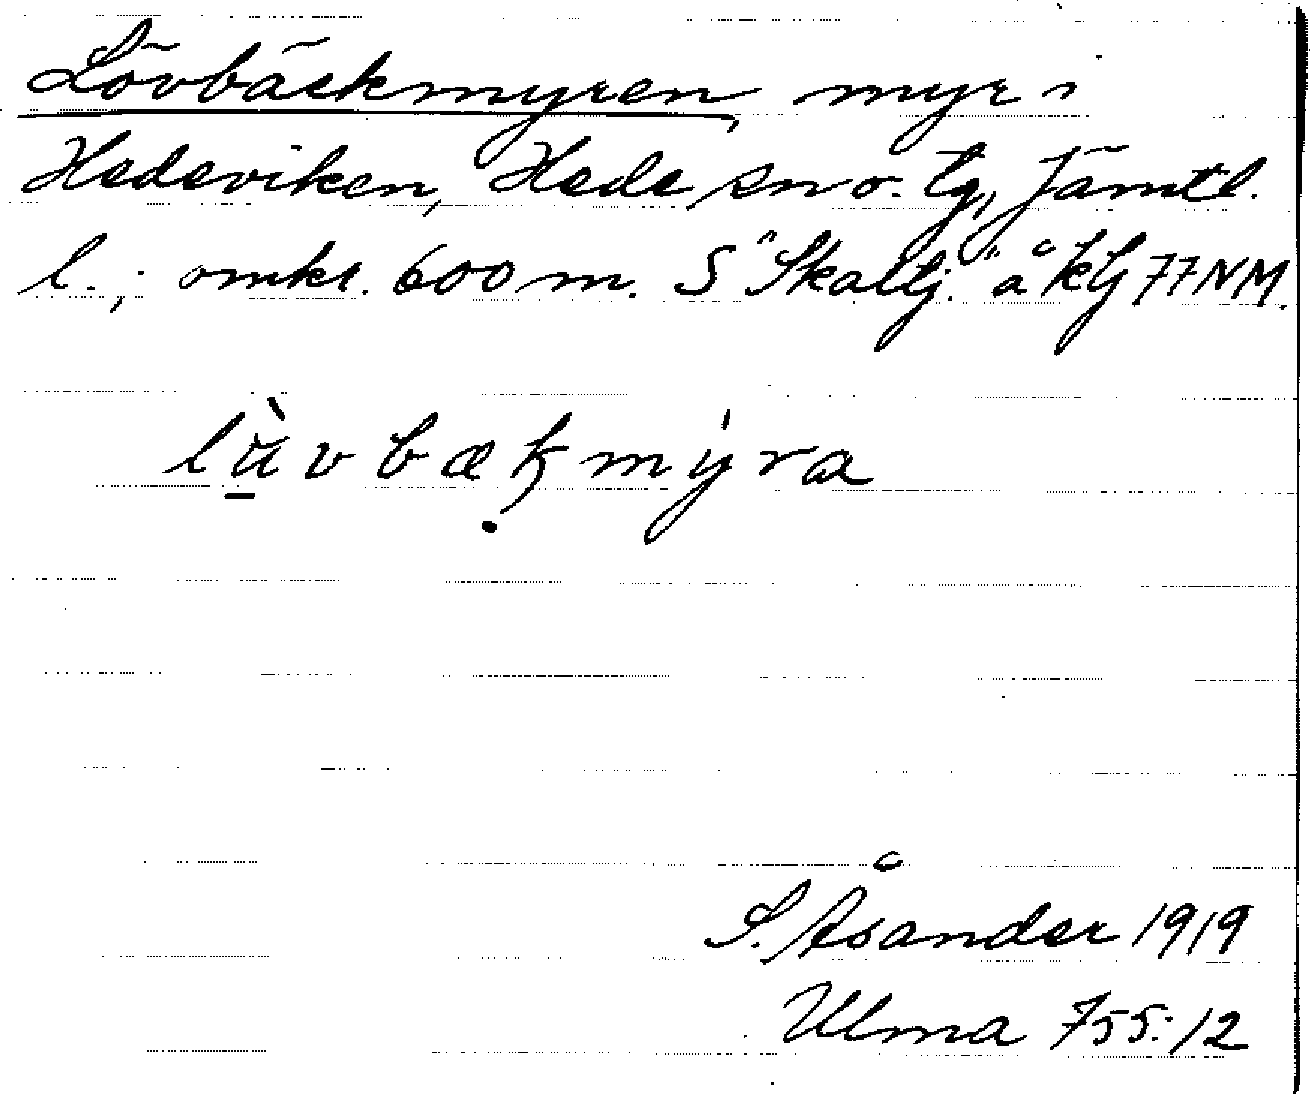 Lövbäckmyren, myr i
Hedeviken, Hede sn o. tg, Jämtl.
l.; omkr. 600 m. S "Skaltj." å kbl 77NM.
lùvbækmýra
S. Åsander 1919
Ulma 755:12